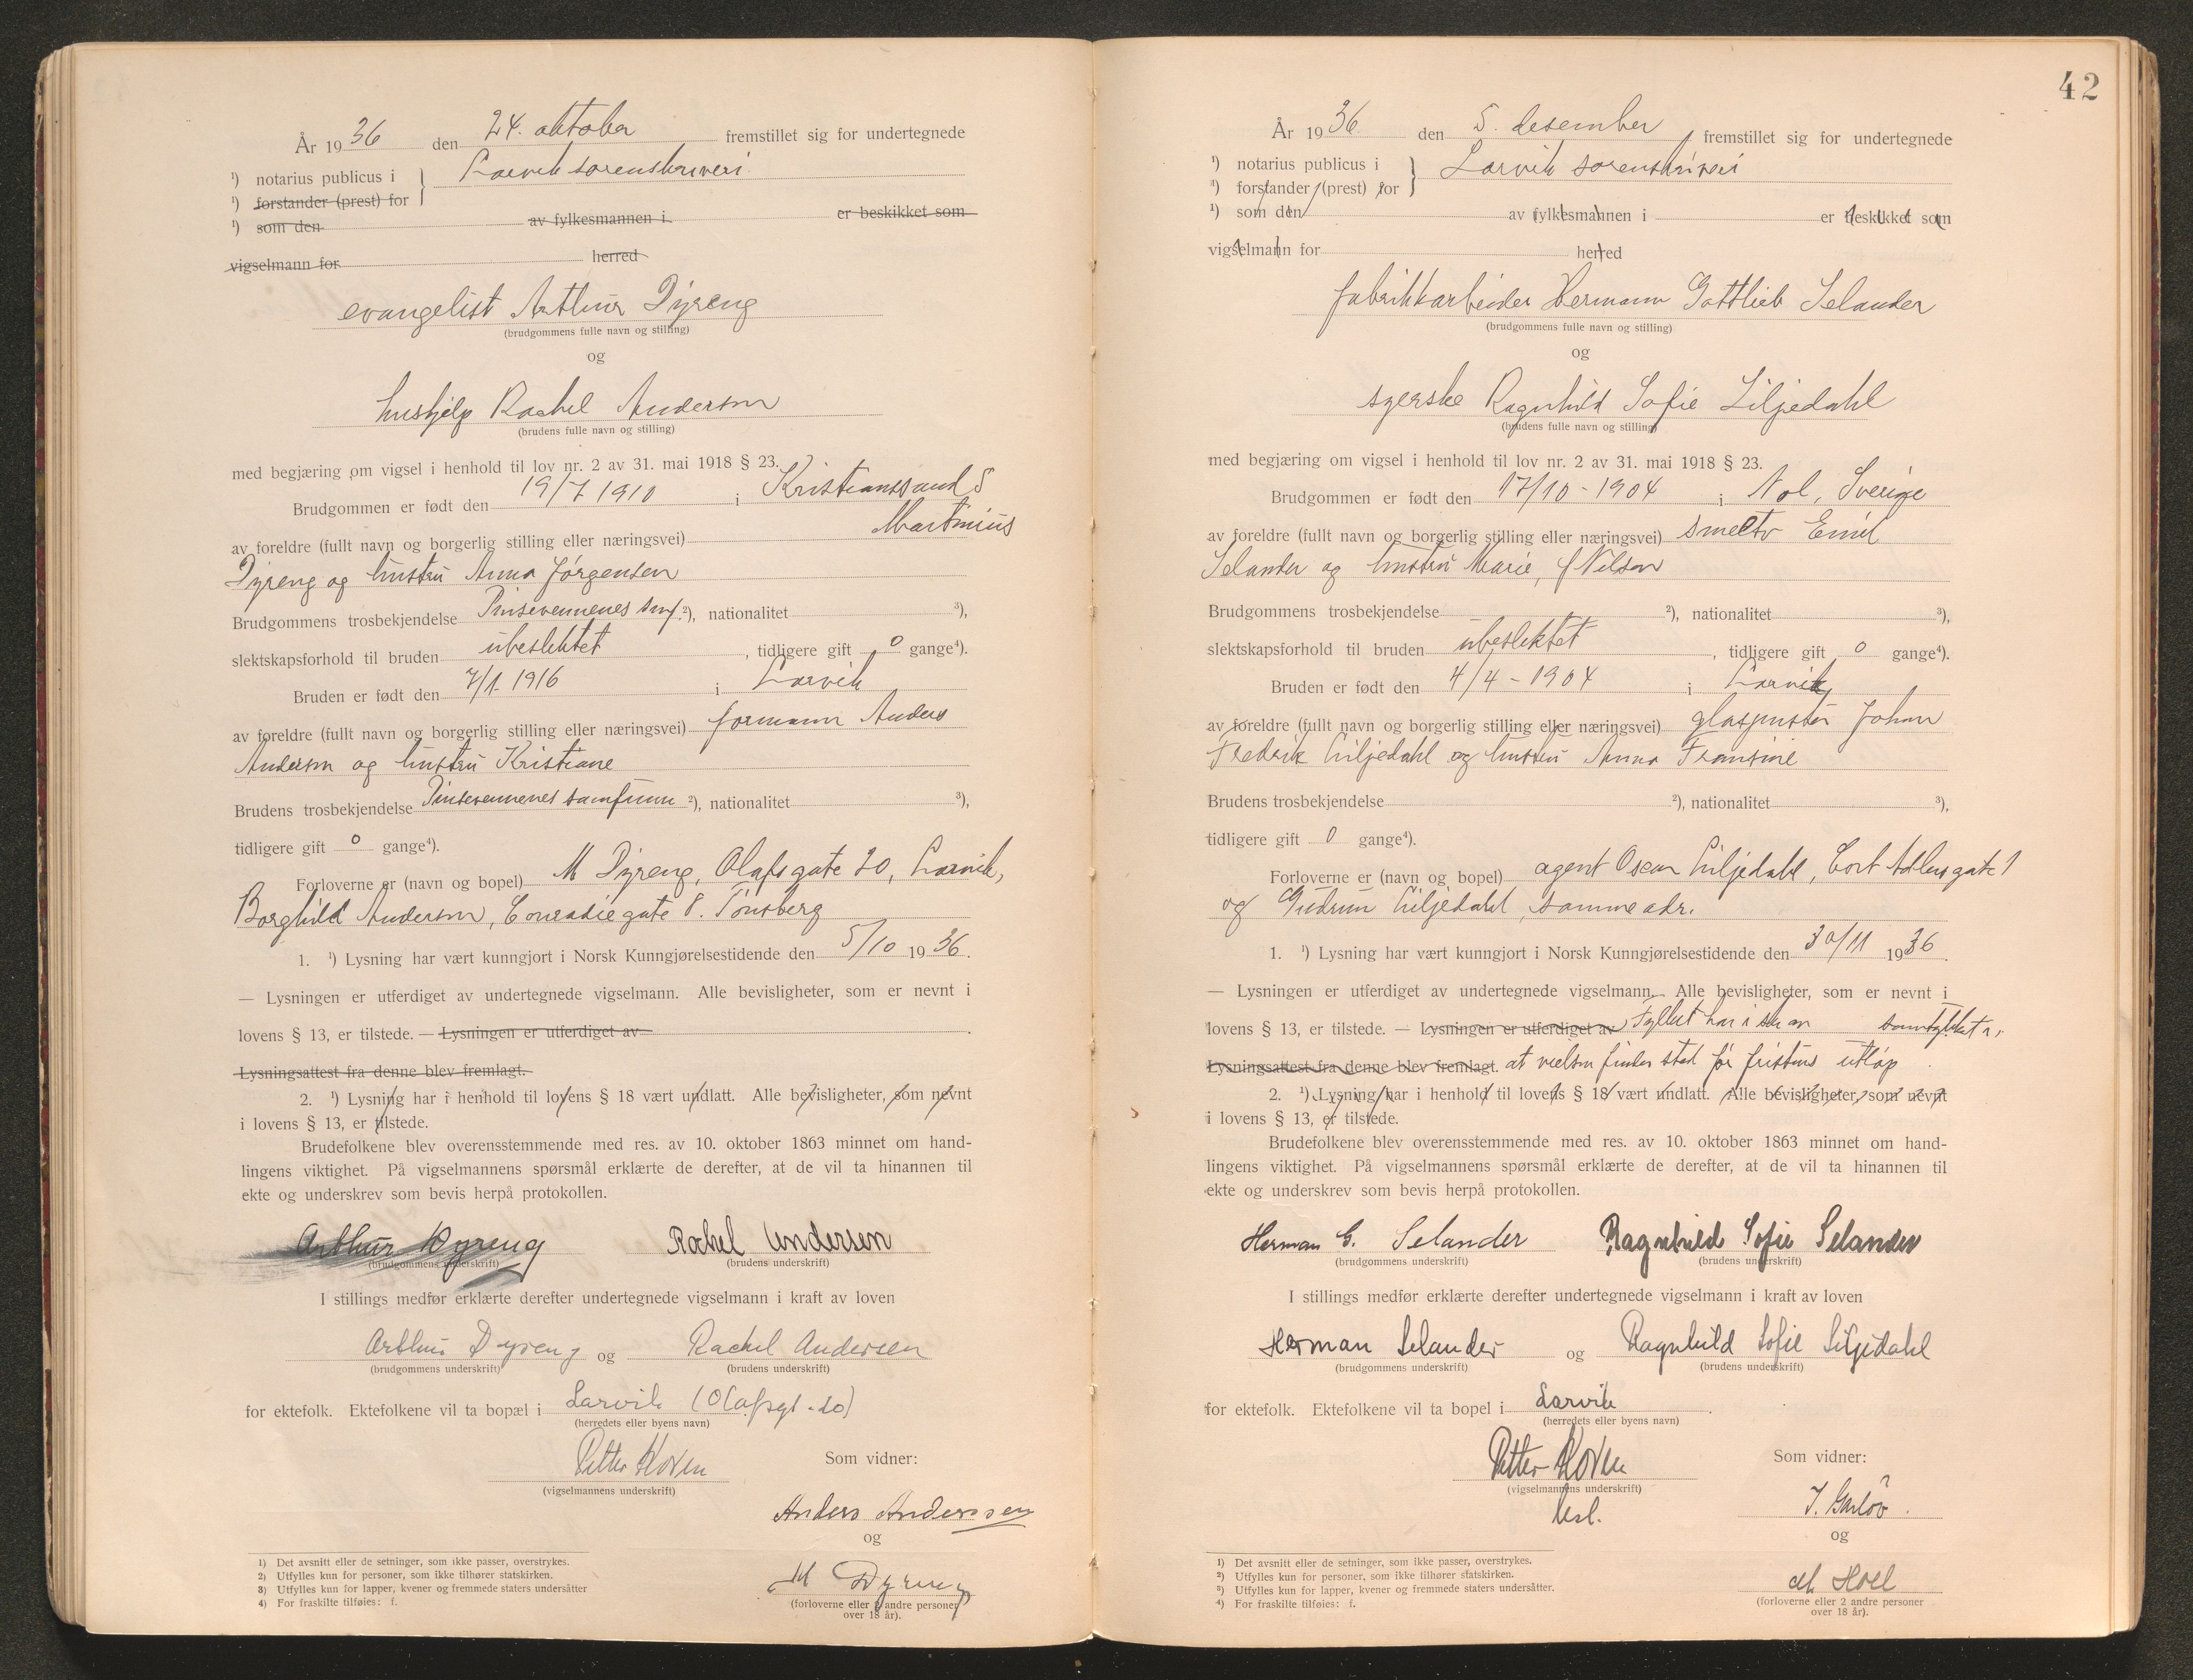 År 1936 den 24. oktober fremstillet sig for undertegnede
¹) notarius publicus i } Larvik sorenskriveri
¹) forstander (prest) for
¹) som den av fylkesmannen i er beskikket som
vigselmann for herred
evangelist Arthur Dyreng
(brudgommens fulle navn og stilling)
og
hushjelp Rachel Andersen
(brudens fulle navn og stilling)
med begjæring om vigsel i henhold til lov nr. 2 av 31. mai 1918 § 23.
Brudgommen er født den 19/7 1910 i Kristianssand S
av foreldre (fullt navn og borgerlig stilling eller næringsvei) Martinius
Dyreng og hustru Anna Jörgensen
Brudgommens trosbekjendelse Pinsevennenes smf. ²), nationalitet ³),
slektskapsforhold til bruden ubeslektet, tidligere gift 0 gange⁴).
Bruden er født den 7/1 1916 i Larvik
av foreldre (fullt navn og borgerlig stilling eller næringsvei) formann Anders
Andersen og hustru Kristiane
Brudens trosbekjendelse Pinsevennenes samfunn ²), nationalitet ³),
tidligere gift 0 gange⁴).
Forloverne er (navn og bopel) M Dyreng, Olafsgate 20, Larvik,
Borghild Andersen, Conradiegate 8. Tønsberg
1. ¹) Lysning har vært kunngjort i Norsk Kunngjørelsestidende den 5/10 1936.
— Lysningen er utferdiget av undertegnede vigselmann. Alle bevisligheter, som er nevnt i
lovens § 13, er tilstede. — Lysningen er utferdiget av .
Lysningsattest fra denne blev fremlagt.
2. ¹) Lysning har i henhold til lovens § 18 vært undlatt. Alle bevisligheter, som nevnt
i lovens § 13, er tilstede.
Brudefolkene blev overensstemmende med res. av 10. oktober 1863 minnet om hand-
lingens viktighet. På vigselmannens spørsmål erklærte de derefter, at de vil ta hinannen til
ekte og underskrev som bevis herpå protokollen.
Arthur Dyreng Rachel Andersen
(brudgommens underskrift) (brudens underskrift)
I stillings medfør erklærte derefter undertegnede vigselmann i kraft av loven
Arthur Dyreng og Rachel Andersen
(brudgommens underskrift) (brudens underskrift)
for ektefolk. Ektefolkene vil ta bopæl i Larvik (Olafsgt. 20)
(herredets eller byens navn)
Petter Koren Som vidner:
(vigselmannens underskrift)
Anders Anderssen
og
M Dyreng
(forloverne eller 2 andre personer
over 18 år).
1) Det avsnitt eller de setninger, som ikke passer, overstrykes.
2) Utfylles kun for personer, som ikke tilhører statskirken.
3) Utfylles kun for lapper, kvener og fremmede staters undersåtter
4) For fraskilte tilføies: f.
42
År 1936 den 5. desember fremstillet sig for undertegnede
¹) notarius publicus i } Larvik sorenskriveri
¹) forstander (prest) for
¹) som den av fylkesmannen i er beskikket som
vigselmann for herred
fabrikkarbeider Hermann Gottlieb Selander
(brudgommens fulle navn og stilling)
og
syerske Ragnhild Sofie Liljedahl
(brudens fulle navn og stilling)
med begjæring om vigsel i henhold til lov nr. 2 av 31. mai 1918 § 23.
Brudgommen er født den 17/10 - 1904 i Nol, Sverige
av foreldre (fullt navn og borgerlig stilling eller næringsvei) smelter Emil
Selander og hustru Marie, f Nilsen
Brudgommens trosbekjendelse ²), nationalitet ³),
slektskapsforhold til bruden ubeslektet, tidligere gift 0 gange⁴).
Bruden er født den 4/4 - 1904 i Larvik
av foreldre (fullt navn og borgerlig stilling eller næringsvei) glaspuster Johan
Fredrik Liljedahl og hustru Anna Fransine
Brudens trosbekjendelse ²), nationalitet ³),
tidligere gift 0 gange⁴).
Forloverne er (navn og bopel) agent Oscar Liljedahl, Cort Adlersgate 1
og Gudrun Liljedahl, samme adr.
1. ¹) Lysning har vært kunngjort i Norsk Kunngjørelsestidende den 30/11 1936.
— Lysningen er utferdiget av undertegnede vigselmann. Alle bevisligheter, som er nevnt i
lovens § 13, er tilstede. — Lysningen er utferdiget av Fylket har i samtykket i,
Lysningsattest fra denne blev fremlagt. at vielsen finder sted før fristens utløp
2. ¹) Lysning har i henhold til lovens § 18 vært undlatt. Alle bevisligheter, som nevnt
i lovens § 13, er tilstede.
Brudefolkene blev overensstemmende med res. av 10. oktober 1863 minnet om hand-
lingens viktighet. På vigselmannens spørsmål erklærte de derefter, at de vil ta hinannen til
ekte og underskrev som bevis herpå protokollen.
Herman G. Selander Ragnhild Sofie Selander
(brudgommens underskrift) (brudens underskrift)
I stillings medfør erklærte derefter undertegnede vigselmann i kraft av loven
Herman Selander og Ragnhild Sofie Liljedahl
(brudgommens underskrift) (brudens underskrift)
for ektefolk. Ektefolkene vil ta bopel i Larvik.
(herredets eller byens navn)
Petter Koren Som vidner:
(vigselmannens underskrift)
og
M Hoel
(forloverne eller 2 andre personer
over 18 år).
1) Det avsnitt eller de setninger, som ikke passer, overstrykes.
2) Utfylles kun for personer, som ikke tilhører statskirken.
3) Utfylles kun for lapper, kvener og fremmede staters undersåtter.
4) For fraskilte tilføies: f.